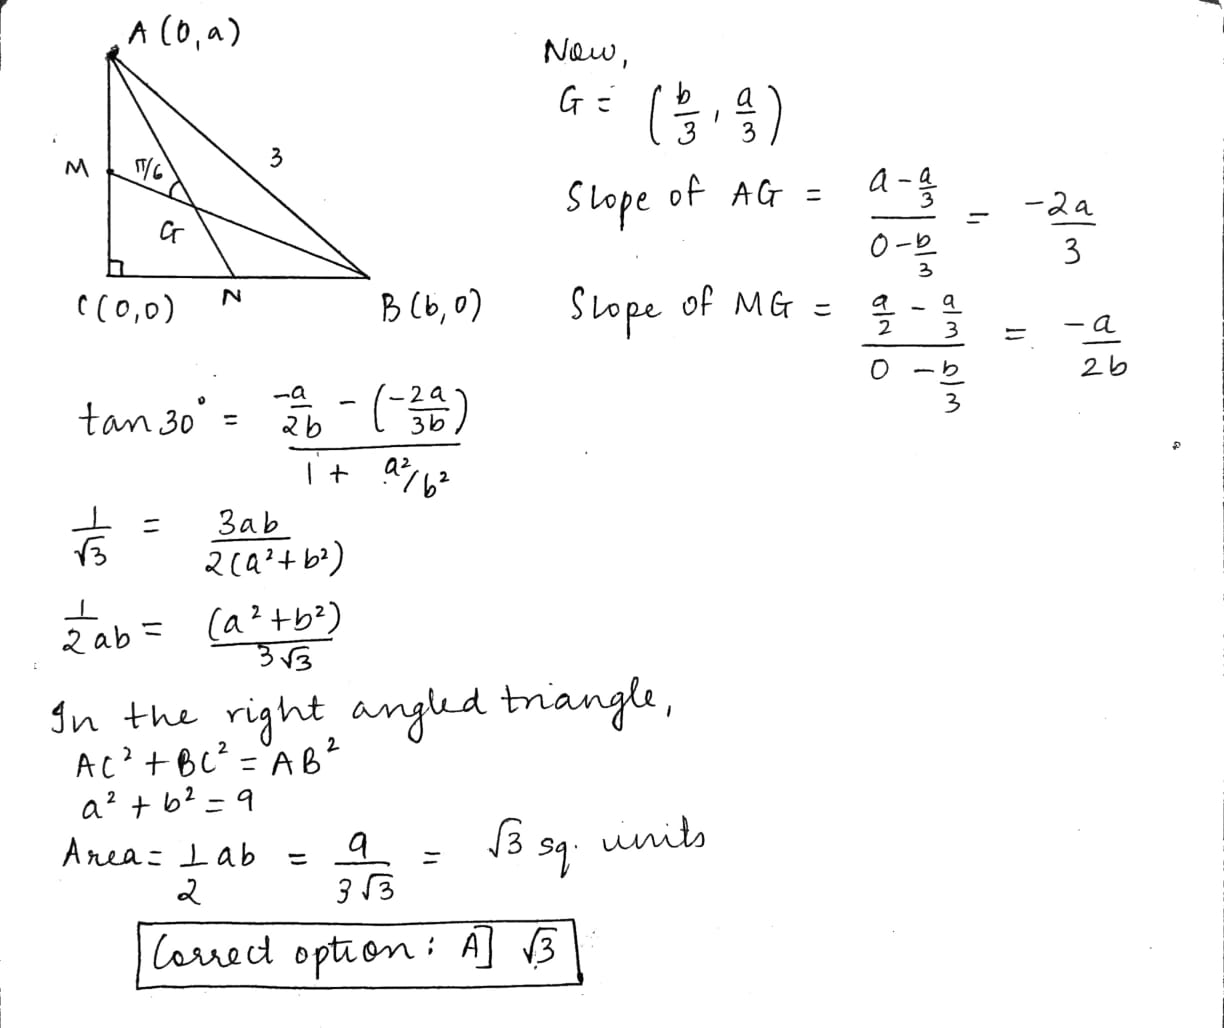 A (0,a)
M
π/6
3
G
C(0,0)
N
B (b, 0)
Now,
G = (b/3, a/3)
Slope of AG = (a - a/3)/(0 - b/3) = -2a/3
Slope of MG = (a/2 - a/3)/(0 - b/3) = -a/2b
tan 30° = (-a/2b - (-2a/3b))/(1 + a²/b²)
1/√3 = 3ab/2(a²+b²)
1/2 ab = (a²+b²)/3√3
In the right angled triangle,
AC² + BC² = AB²
a² + b² = 9
Area = 1/2 ab = 9/3√3 = √3 sq. units
Correct option: A] √3